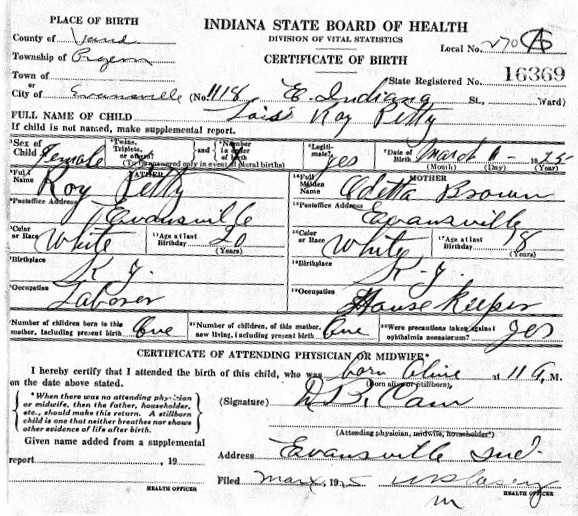 PLACE OF BIRTH
INDIANA STATE BOARD OF HEALTH
DIVISION OF VITAL STATISTICS
CERTIFICATE OF BIRTH
County of Vand
Local No. 270
Township of Pigeon
Town of
State Registered No. 16369
City of Evansville (No. 1118 E. Indiana St., Ward)
FULL NAME OF CHILD Lois Roy Petty
If child is not named, make supplemental report.
Sex of Child Female Twins, Triplets, or other? and Number in order of birth Legitimate? yes Date of Birth March 1925
(To be answered only in event of plural births) (Month) (Day) (Year)
FATHER MOTHER
Full Name Roy Petty Full Maiden Name Odetta Brown
Postoffice Address Evansville Postoffice Address Evansville
Color or Race White Age at last Birthday 20 (Years) Color or Race White Age at last Birthday 18 (Years)
Birthplace Ky. Birthplace Ky.
Occupation Laborer Occupation House Keeper
Number of children born to this mother, including present birth One Number of children, of this mother, now living, including present birth One Were precautions taken against ophthalmia neonatorum? yes
CERTIFICATE OF ATTENDING PHYSICIAN OR MIDWIFE*
I hereby certify that I attended the birth of this child, who was born alive at 11 A. M.
on the date above stated. (Born alive or stillborn)
*When there was no attending physician
or midwife, then the father, householder,
etc., should make this return. A stillborn
child is one that neither breathes nor shows
other evidence of life after birth.
(Signature)
(Attending physician, midwife, householder*)
Given name added from a supplemental
report , 19
Address Evansville Ind.
HEALTH OFFICER
Filed Mar 1925
HEALTH OFFICER